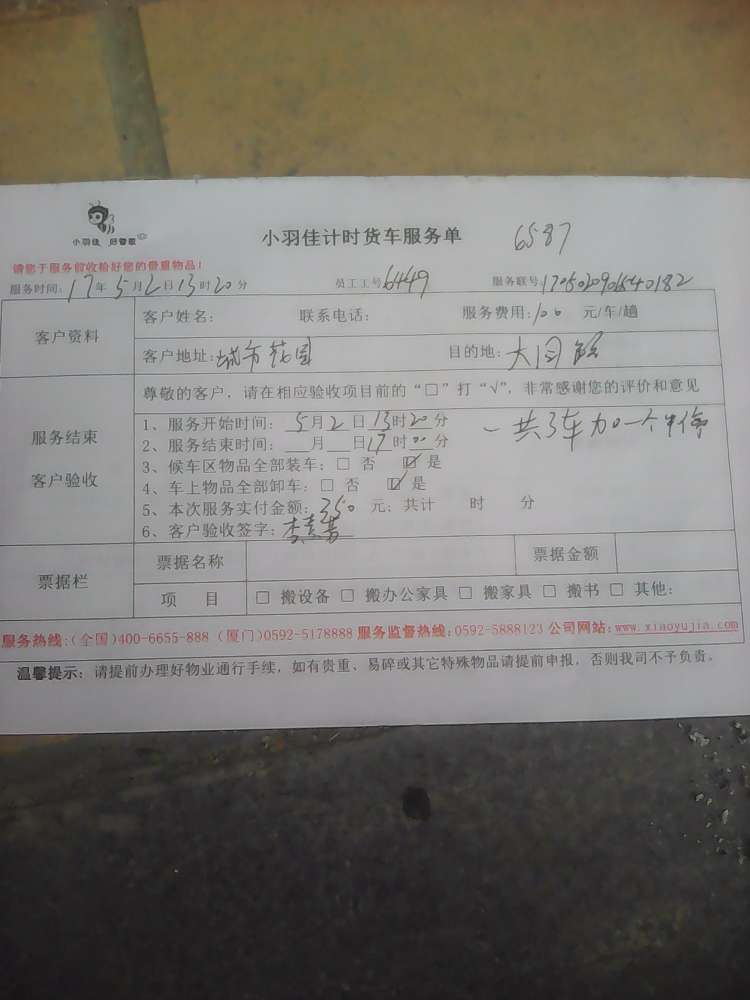 小羽佳 好管家
小羽佳计时货车服务单 6587
请您于服务前收拾好您的贵重物品！
服务时间：17年5月2日13时20分 员工工号6449 服务联号
客户资料
客户姓名： 联系电话： 服务费用：100 元/车/趟
客户地址：城市花园 目的地：大同路
服务结束
客户验收
尊敬的客户，请在相应验收项目前的“□”打“√”，非常感谢您的评价和意见
1、服务开始时间：5月2日13时20分 一共3车加一个中途
2、服务结束时间：月 日17时00分
3、候车区物品全部装车：□ 否 ☑ 是
4、车上物品全部卸车：□ 否 ☑ 是
5、本次服务实付金额：350 元；共计 时 分
6、客户验收签字：
票据栏
票据名称 票据金额
项 目 □ 搬设备 □ 搬办公家具 □ 搬家具 □ 搬书 □ 其他：
服务热线：(全国)400-6655-888 (厦门)0592-5178888 服务监督热线：0592-5888123 公司网站：www.xiaoyujia.com
温馨提示：请提前办理好物业通行手续，如有贵重、易碎或其它特殊物品请提前申报，否则我司不予负责。